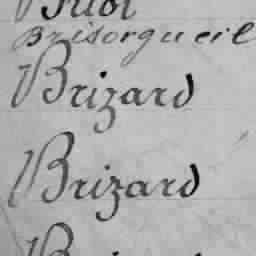 Brisorgueil
Brizard
Brizard